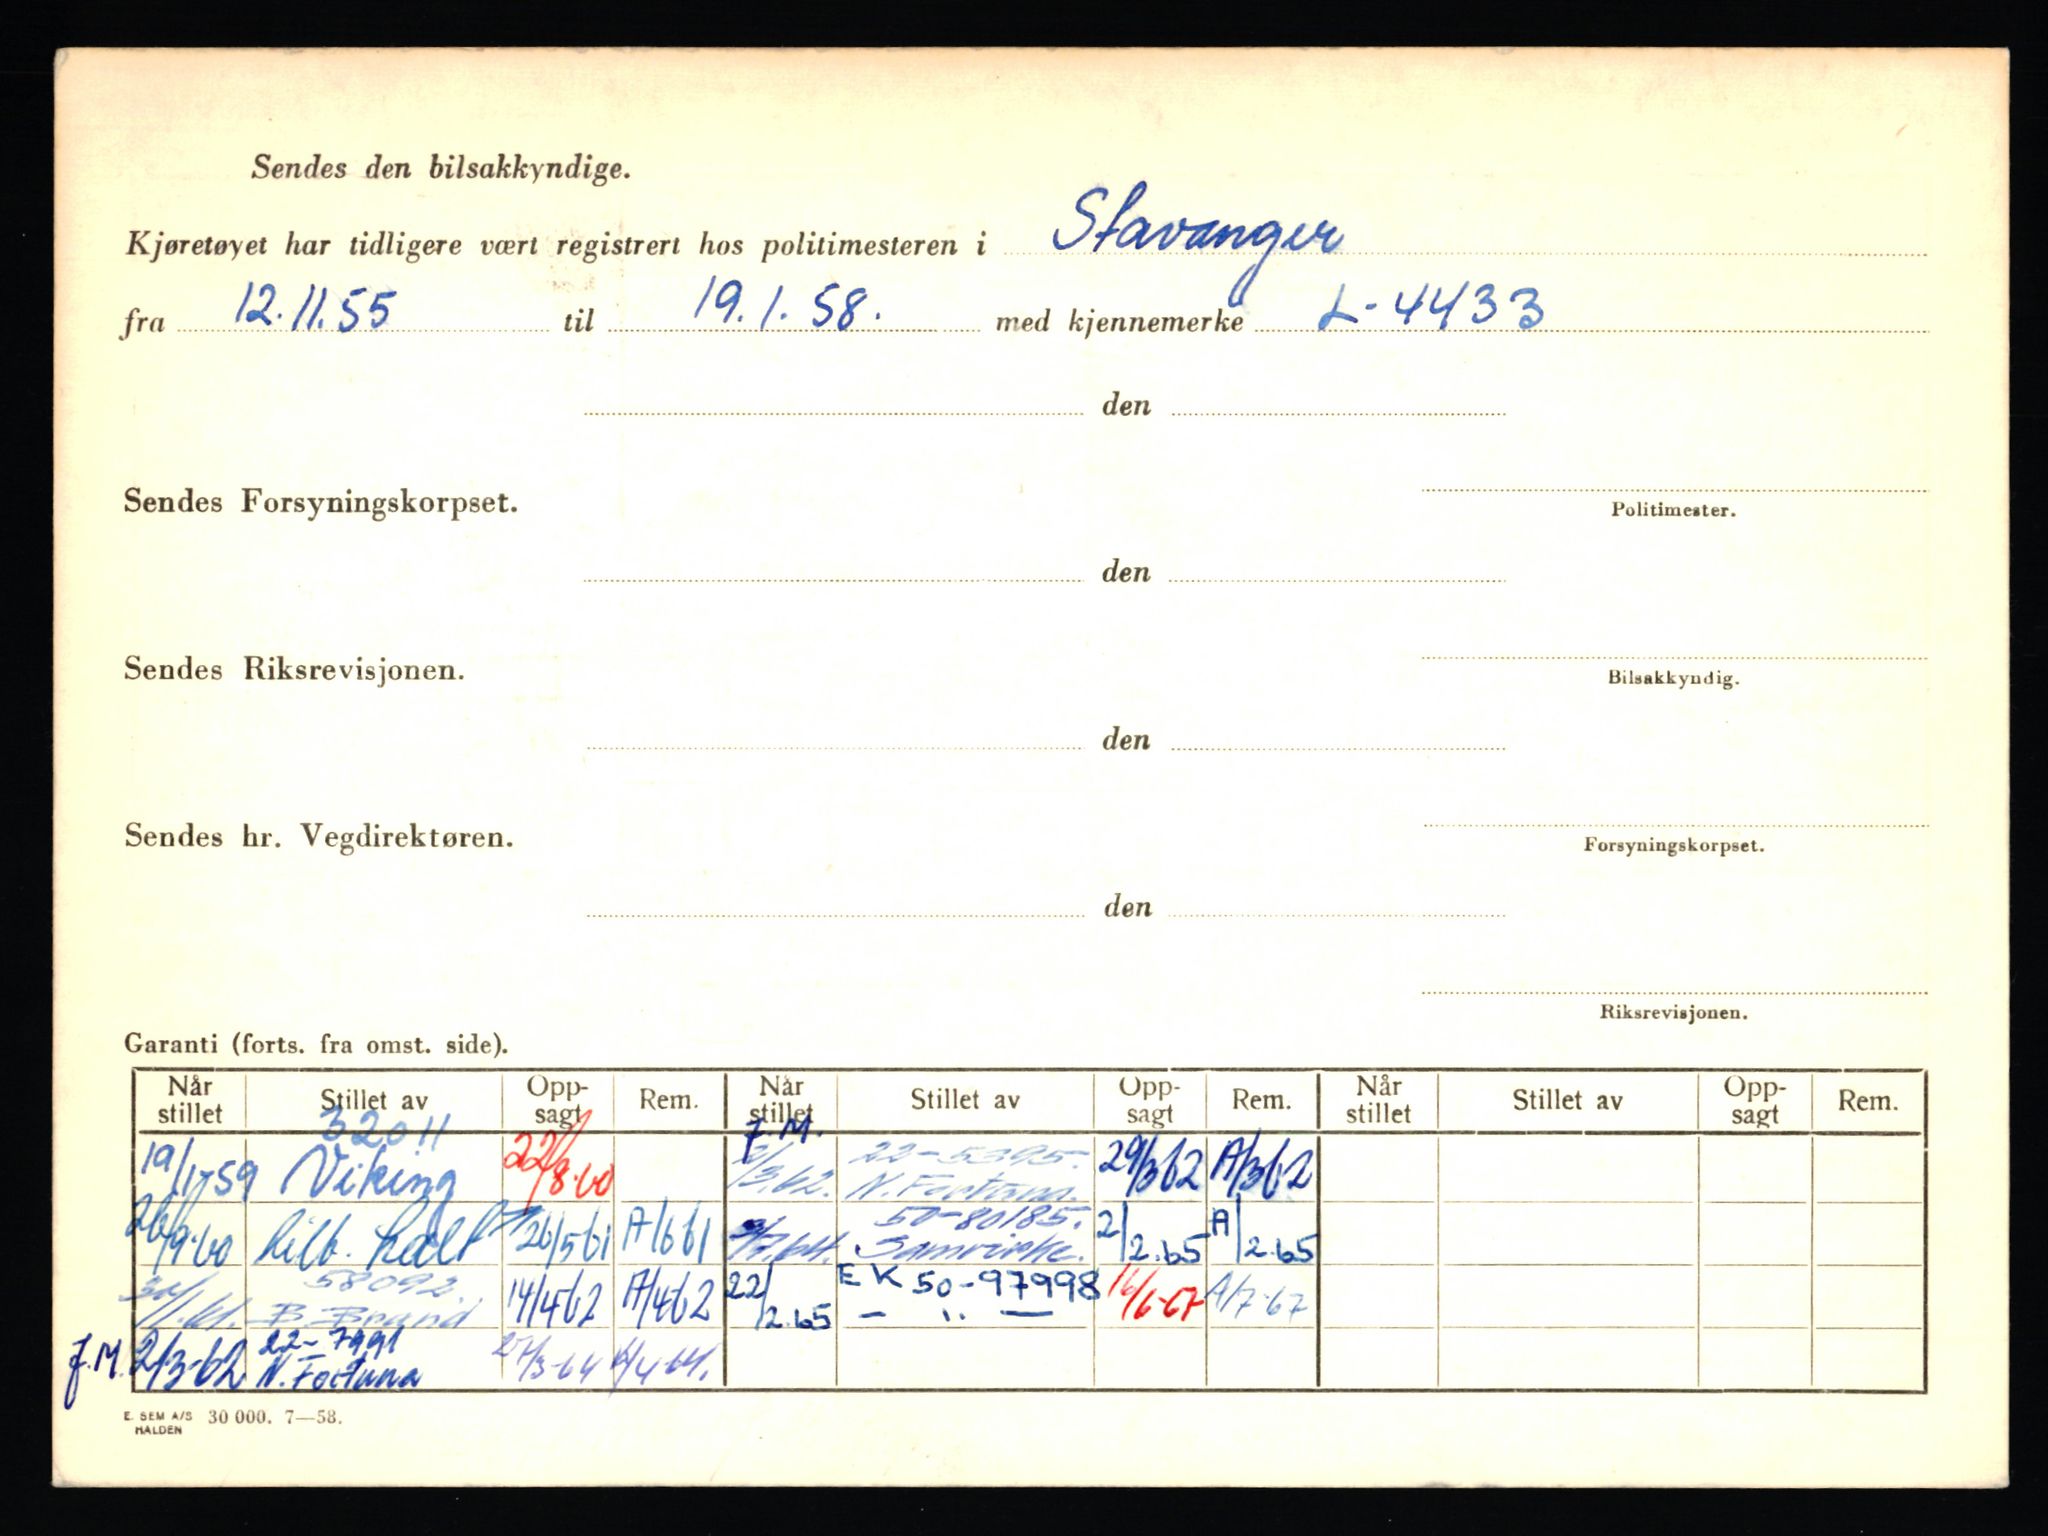 Sendes den bilsakkyndige.
Kjøretøyet har tidligere vært registrert hos politimesteren i Stavanger
fra 12.11.55 til 19.1.58. med kjennemerke L-4433
den
Sendes Forsyningskorpset.
Politimester.
den
Sendes Riksrevisjonen.
Bilsakkyndig.
den
Sendes hr. Vegdirektøren.
Forsyningskorpset.
den
Riksrevisjonen.
Garanti (forts. fra omst. side).
Når stillet Stillet av Opp-sagt Rem. Når stillet Stillet av Opp-sagt Rem. Når stillet Stillet av Opp-sagt Rem.
32011
19/1-59 Viking 22/8.60
26/9.60 26/5 61 A/6 61
58092.
B. Brand 14/4 62 A/4 62
22-7991
J.M. 2/3-62 N. Fortuna 27/3-64
J.M.
22-5395.
/3.62. N. Fortuna. 29/3 62 A/3 62
50-80185.
Samvirke. 2/2.65 A/2.65
22/2.65 EK 50-97998 16/6-67 A/7-67
— " —
E. SEM A/S 30 000. 7—58.
HALDEN